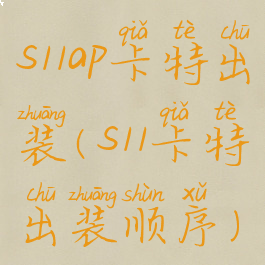 qiǎ tè chū
s11ap卡特出
zhuāng qiǎ tè
装(s11卡特
chū zhuāng shùn xǔ
出装顺序)